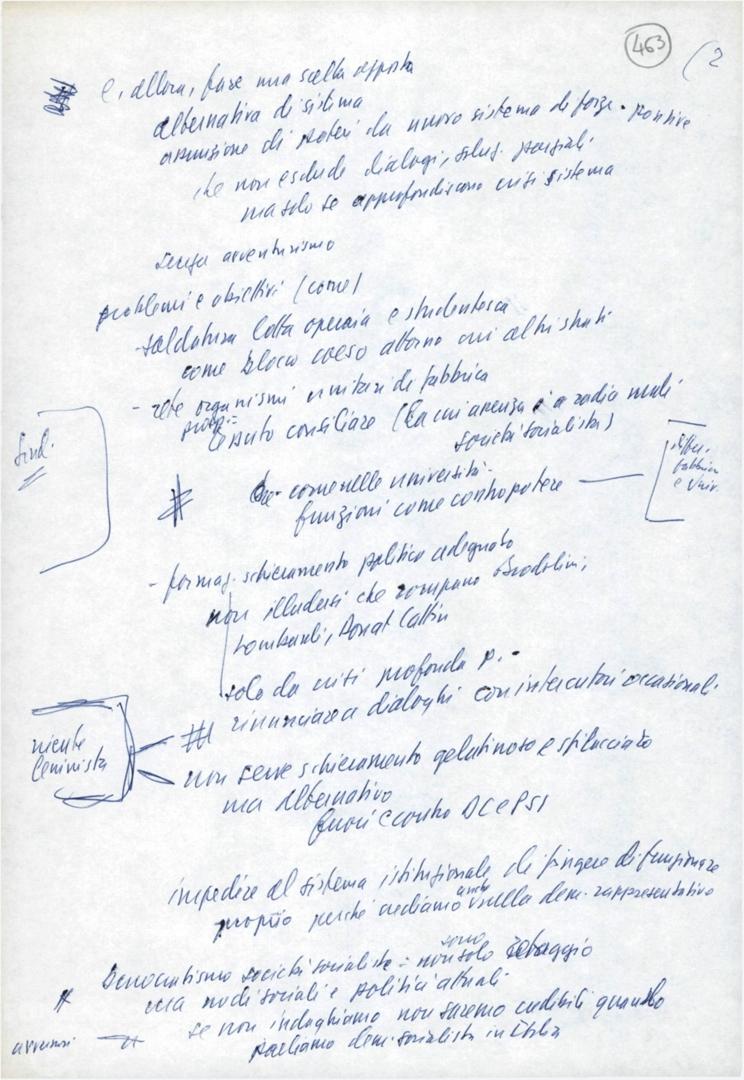 463
(2
e, allora, fare una scelta opposta
alternativa di sistema
assunzione di poteri da nuovo sistema di forze - positive
che non esclude dialogi, soluz. parziali
ma solo se approfondiscono crisi sistema
senza avventurismo
problemi e obiettivi (come)
- saldatura lotta operaia e studentesca
come blocco coeso attorno cui altri strati
- rete organismi unitari di fabbrica
tessuto consiliare (la cui assenza è a radice mali
società socialista)
Sind.
come nelle università -
funzioni come contropotere
fabbrica
e Univ.
- formaz. schieramento politico adeguato
non illudersi che rompano Brodolini,
Lombardi, Donat Cattin
solo da crisi profonda p. -
rinunciare a dialoghi con interlocutori occasionali
niente
leninista
non serve schieramento gelatinoso e sfilacciato
ma alternativo
fuori e contro DC e PSI
impedire al sistema istituzionale di fingere di funzionare
proprio perché crediamo anche nella dem. rappresentativa
società socialiste : non sono solo retaggio
ma nodi sociali e politici attuali
se non indaghiamo non saremo credibili quando
parliamo dem. socialista in Italia